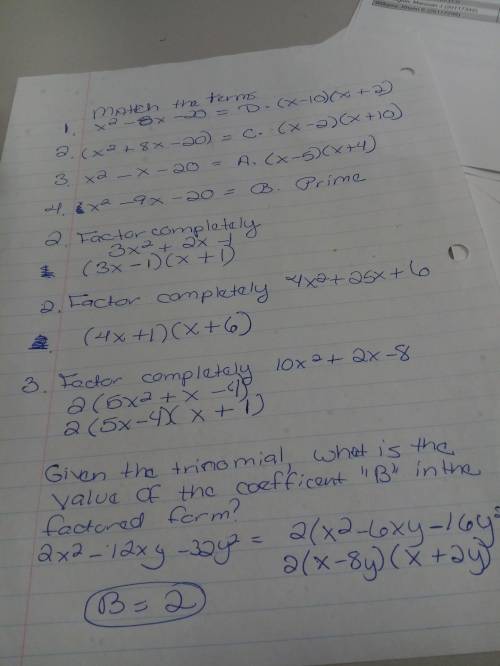 Match the terms
1. x² - 8x - 20 = D. (x-10)(x+2)
2. (x² + 8x - 20) = C. (x-2)(x+10)
3. x² - x - 20 = A. (x-5)(x+4)
4. x² - 9x - 20 = B. Prime
2. Factor completely
3x² + 2x - 1
(3x-1)(x+1)
2. Factor completely 4x²+25x+6
(4x+1)(x+6)
3. Factor completely 10x²+2x-8
2(5x²+x-4)
2(5x-4)(x+1)
Given the trinomial, what is the
value of the coefficent "B" in the
factored form?
2x²-12xy-32y² = 2(x²-6xy-16y²
2(x-8y)(x+2y)
B = 2